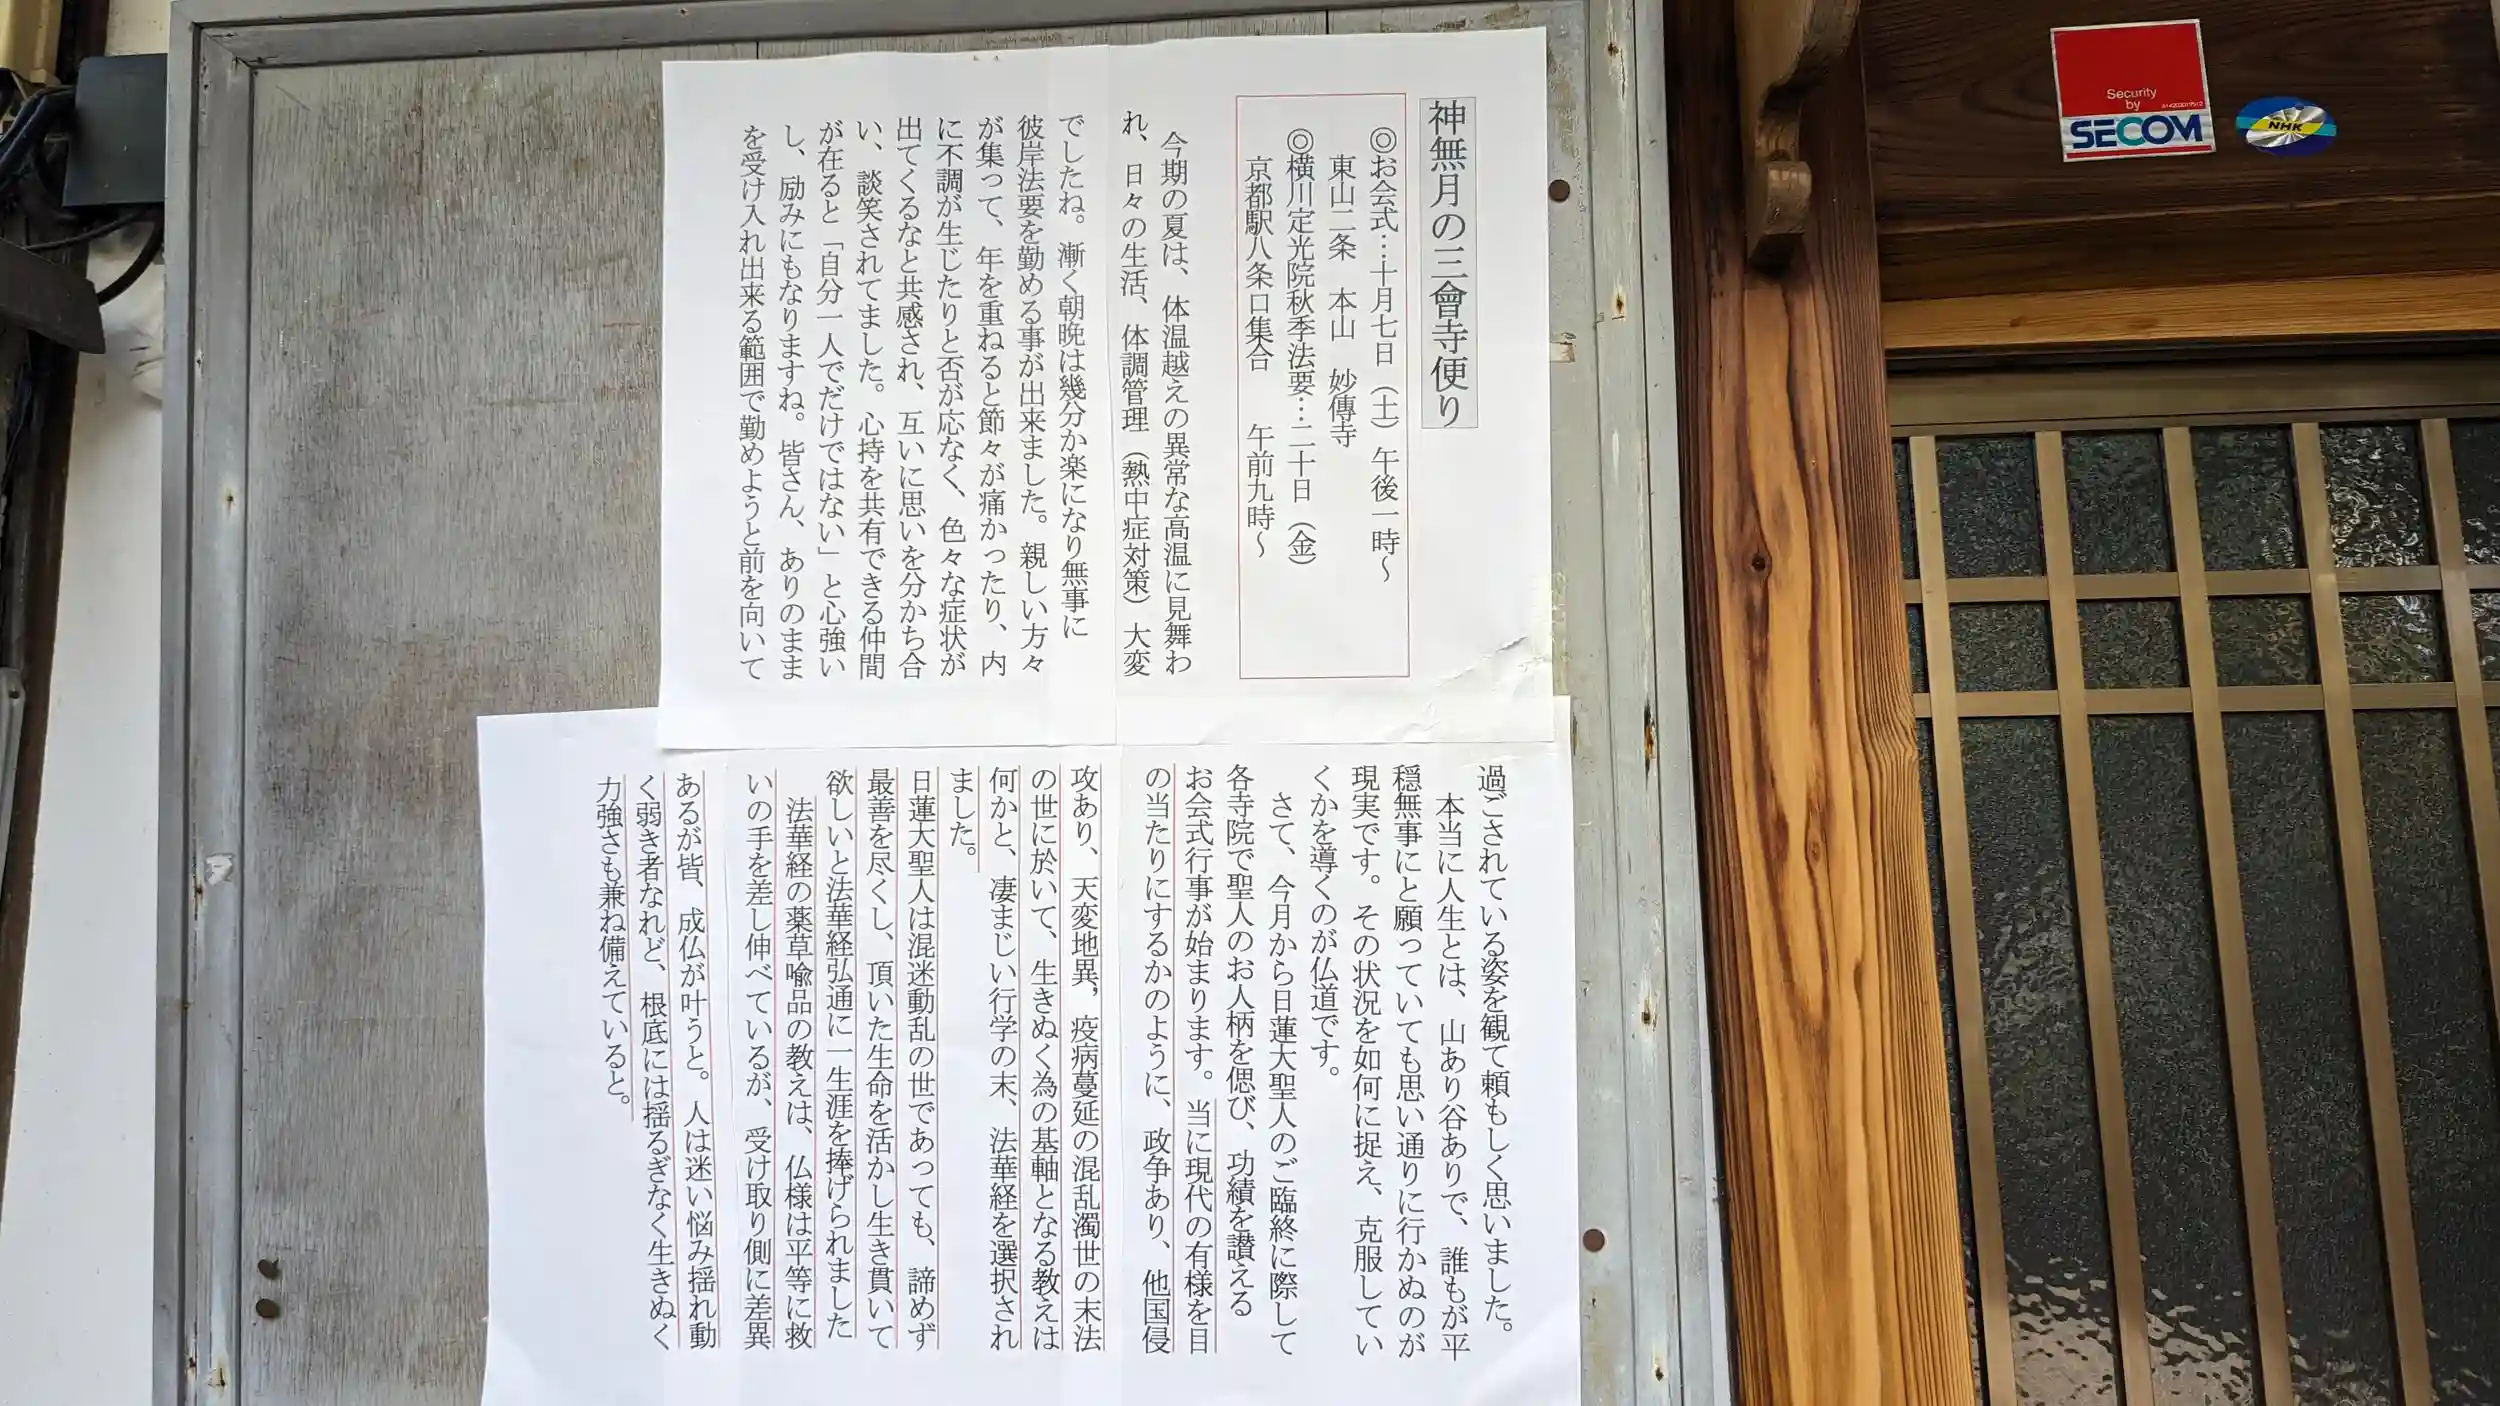 神無月の三會寺便り
◎お会式…十月七日（土）午後一時～
東山二条　本山　妙傳寺
◎横川定光院秋季法要…二十日（金）
京都駅八条口集合　午前九時～
今期の夏は、体温越えの異常な高温に見舞わ
れ、日々の生活、体調管理（熱中症対策）大変
でしたね。漸く朝晩は幾分か楽になり無事に
彼岸法要を勤める事が出来ました。親しい方々
が集って、年を重ねると節々が痛かったり、内
に不調が生じたりと否が応なく、色々な症状が
出てくるなと共感され、互いに思いを分かち合
い、談笑されてました。心持を共有できる仲間
が在ると「自分一人でだけではない」と心強い
し、励みにもなりますね。皆さん、ありのまま
を受け入れ出来る範囲で勤めようと前を向いて
過ごされている姿を観て頼もしく思いました。
本当に人生とは、山あり谷ありで、誰もが平
穏無事にと願っていても思い通りに行かぬのが
現実です。その状況を如何に捉え、克服してい
くかを導くのが仏道です。
さて、今月から日蓮大聖人のご臨終に際して
各寺院で聖人のお人柄を偲び、功績を讃える
お会式行事が始まります。当に現代の有様を目
の当たりにするかのように、政争あり、他国侵
攻あり、天変地異，疫病蔓延の混乱濁世の末法
の世に於いて、生きぬく為の基軸となる教えは
何かと、凄まじい行学の末、法華経を選択され
ました。
日蓮大聖人は混迷動乱の世であっても、諦めず
最善を尽くし、頂いた生命を活かし生き貫いて
欲しいと法華経弘通に一生涯を捧げられました
法華経の薬草喩品の教えは、仏様は平等に救
いの手を差し伸べているが、受け取り側に差異
あるが皆、成仏が叶うと。人は迷い悩み揺れ動
く弱き者なれど、根底には揺るぎなく生きぬく
力強さも兼ね備えていると。
Security
by
SECOM
NHK